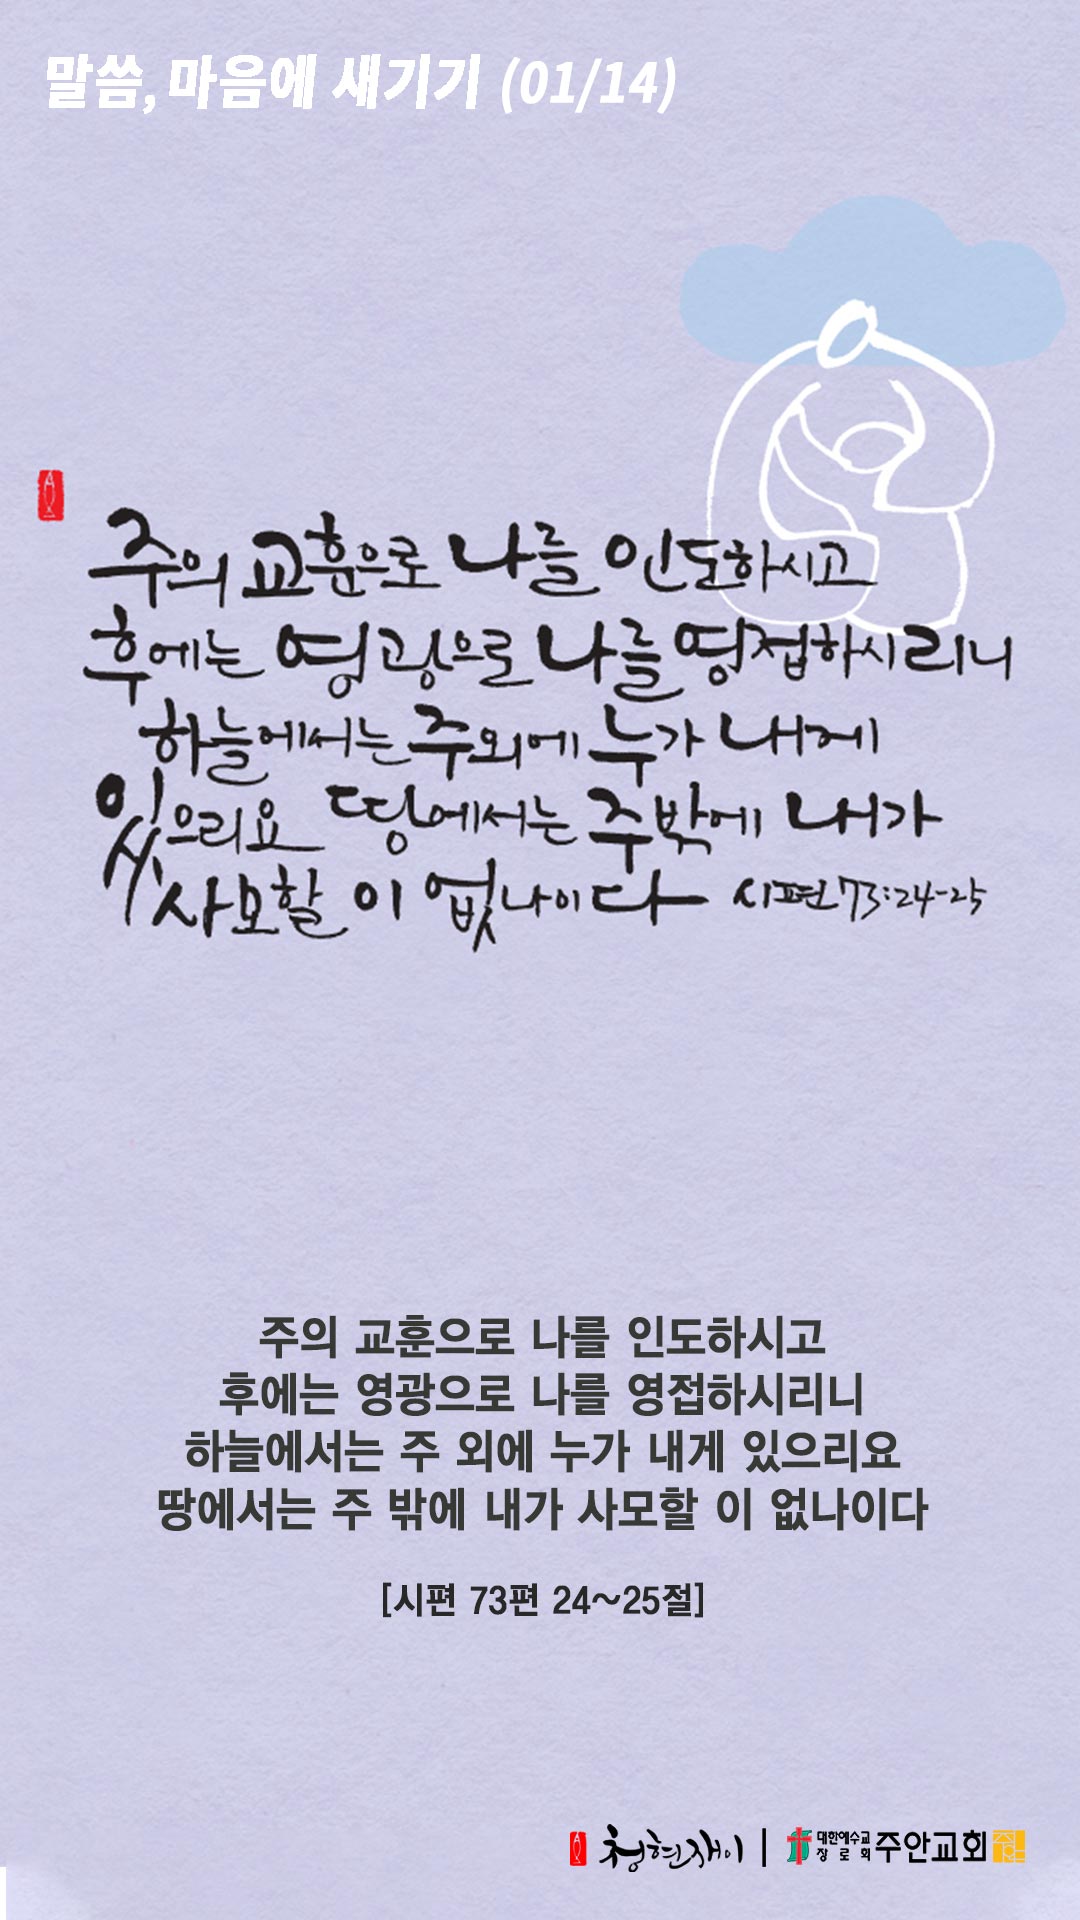 말씀, 마음에 새기기 (01/14)
주의 교훈으로 나를 인도하시고
후에는 영광으로 나를 영접하시리니
하늘에서는 주외에 누가 내게
있으리요 땅에서는 주밖에 내가
사모할 이 없나이다 시편 73:24-25
주의 교훈으로 나를 인도하시고
후에는 영광으로 나를 영접하시리니
하늘에서는 주 외에 누가 내게 있으리요
땅에서는 주 밖에 내가 사모할 이 없나이다
[시편 73편 24~25절]
청현재이 | 대한예수교 장로회 주안교회